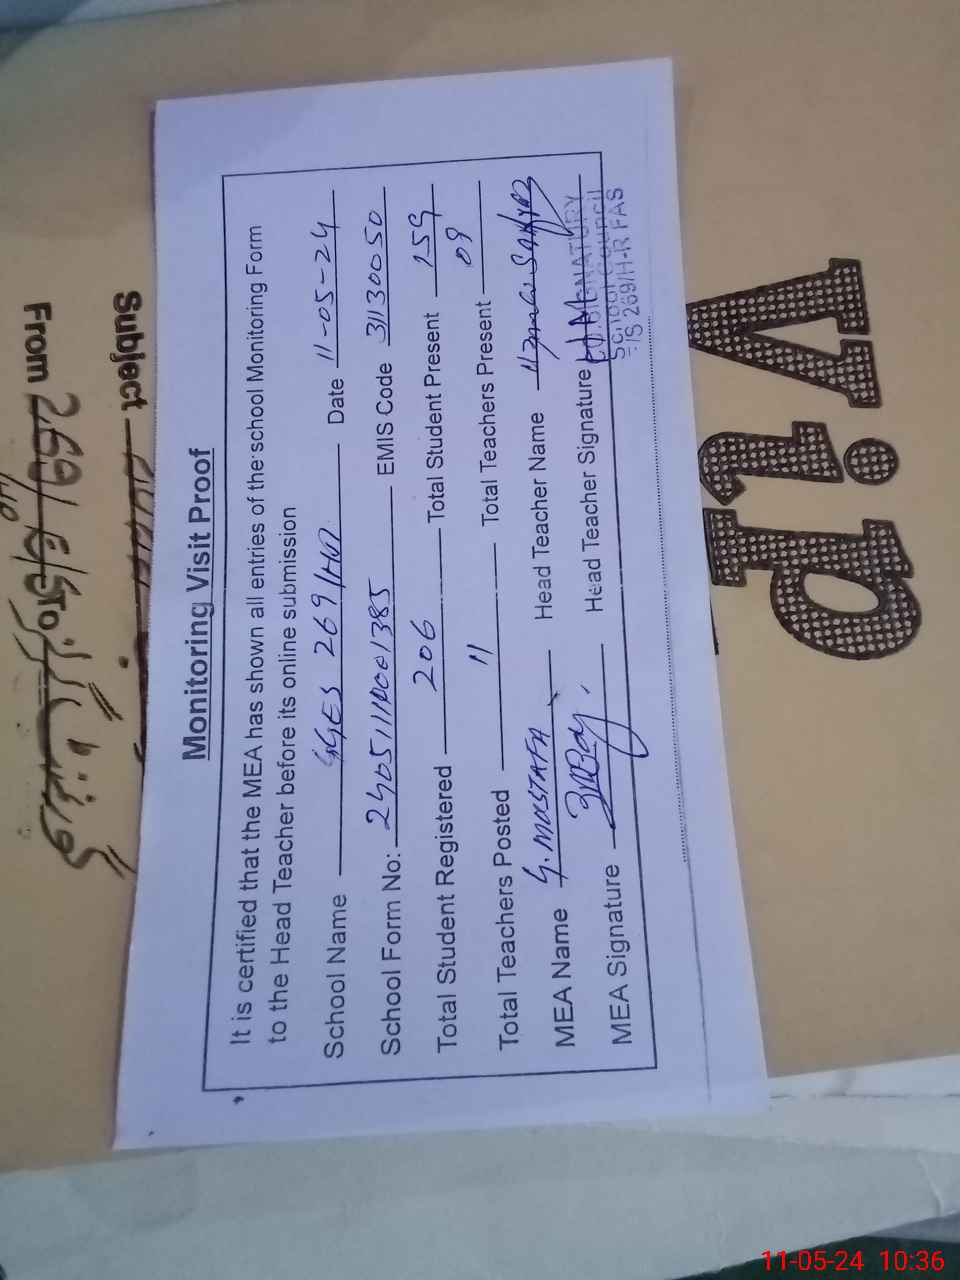 Monitoring Visit Proof
It is certified that the MEA has shown all entries of the school Monitoring Form
to the Head Teacher before its online submission
School Name GGES 269/HR Date 11-05-24
School Form No: 2405111P001385 EMIS Code 31130050
Total Student Registered 206 Total Student Present 159
Total Teachers Posted 11 Total Teachers Present 09
MEA Name G. MUSTAFA Head Teacher Name
MEA Signature Head Teacher Signature
SIGNATURY
School Council
269/H-R FAS
Subject
From 269/
ViP
11-05-24 10:36